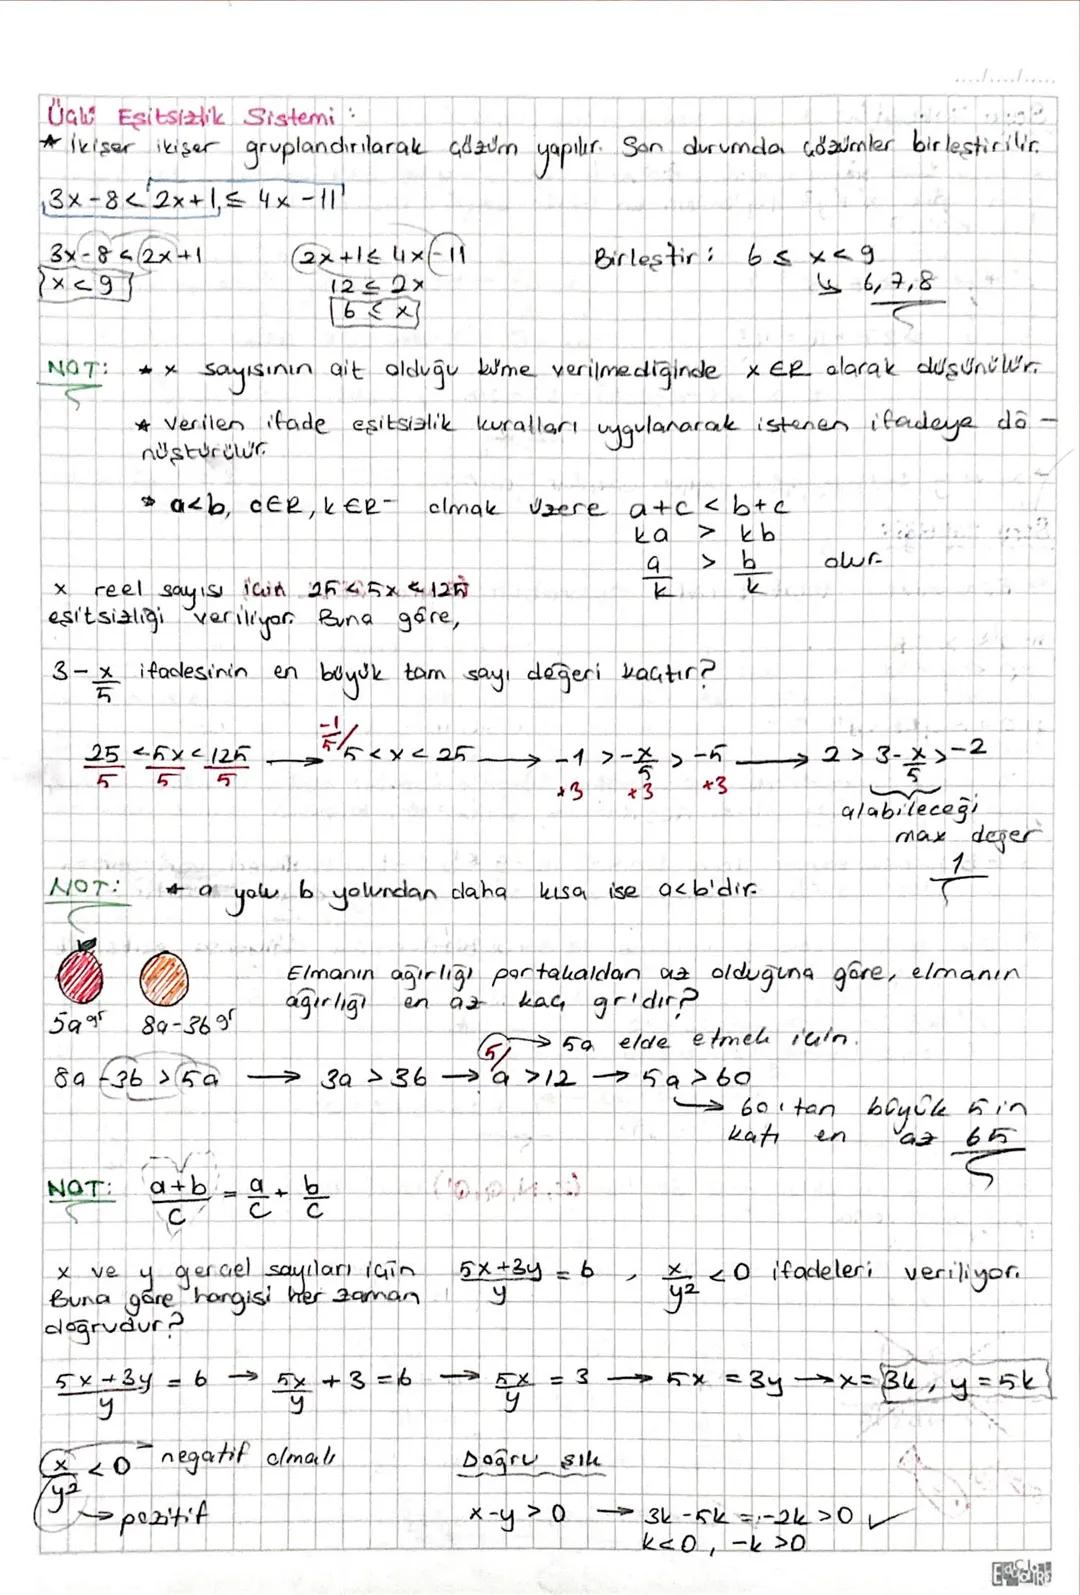 Üçlü Eşitsizlik Sistemi :
* İkişer ikişer gruplandırılarak çözüm yapılır. Son durumda çözümler birleştirilir.
3x-8 < 2x+1 ≤ 4x-11
3x-8 < 2x+1 2x+1 ≤ 4x-11 Birleştir : 6 ≤ x < 9
x < 9 12 ≤ 2x ↳ 6,7,8
6 ≤ x
NOT: * x sayısının ait olduğu küme verilmediğinde x ∈ R olarak düşünülür.
* Verilen ifade eşitsizlik kuralları uygulanarak istenen ifadeye dö-
nüştürülür.
* a<b, c∈R, k∈R⁻ olmak üzere a+c < b+c
ka > kb
a/k > b/k olur.
x reel sayısı için 25 < 5x < 125
eşitsizliği veriliyor. Buna göre,
3 - x/5 ifadesinin en büyük tam sayı değeri kaçtır?
25/5 < 5x/5 < 125/5 → -1/5 / 5 < x < 25 → -1 > -x/5 > -5 → 2 > 3 - x/5 > -2
+3 +3 +3
alabileceği
max değer
1
NOT: * a yolu b yolundan daha kısa ise a<b'dir.
Elmanın ağırlığı portakaldan az olduğuna göre, elmanın
ağırlığı en az kaç gr'dır?
5a gr 8a-36 gr
5/ → 5a elde etmek için.
8a - 36 > 5a → 3a > 36 → a > 12 → 5a > 60
→ 60'tan büyük 5'in
katı en az 65
NOT: a+b/c = a/c + b/c
x ve y gerçel sayıları için 5x+3y/y = 6 , x/y² < 0 ifadeleri veriliyor.
Buna göre hangisi her zaman
doğrudur?
5x+3y/y = 6 → 5x/y + 3 = 6 → 5x/y = 3 → 5x = 3y → x = 3k, y = 5k
x/y² < 0 negatif olmalı Doğru şık
→ pozitif x-y > 0 → 3k-5k = -2k > 0 ✓
k<0, -k>0